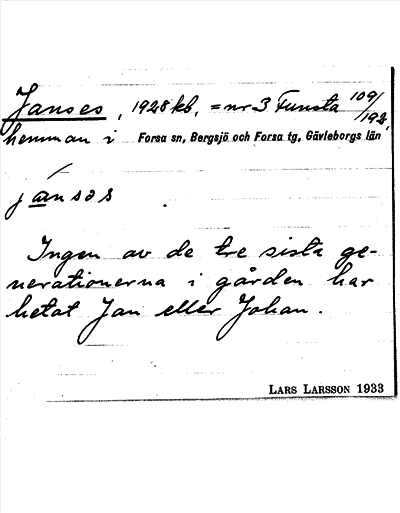 Janses, 1928 kb, = nr 3 Funsta 109/192,
hemman i Forsa sn, Bergsjö och Forsa tg, Gävleborgs län
jansəs
Ingen av de tre sista ge-
nerationerna i gården har
hetat Jan eller Johan.
LARS LARSSON 1933